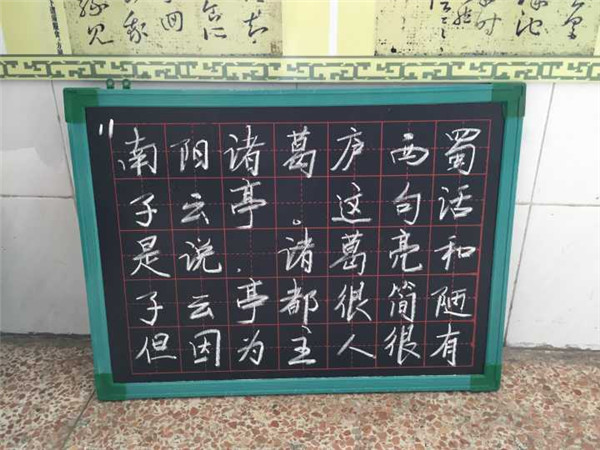 "南阳诸葛庐西蜀
子云亭。这句话
是说，诸葛亮和
子云亭都很简陋
但因为主人很有